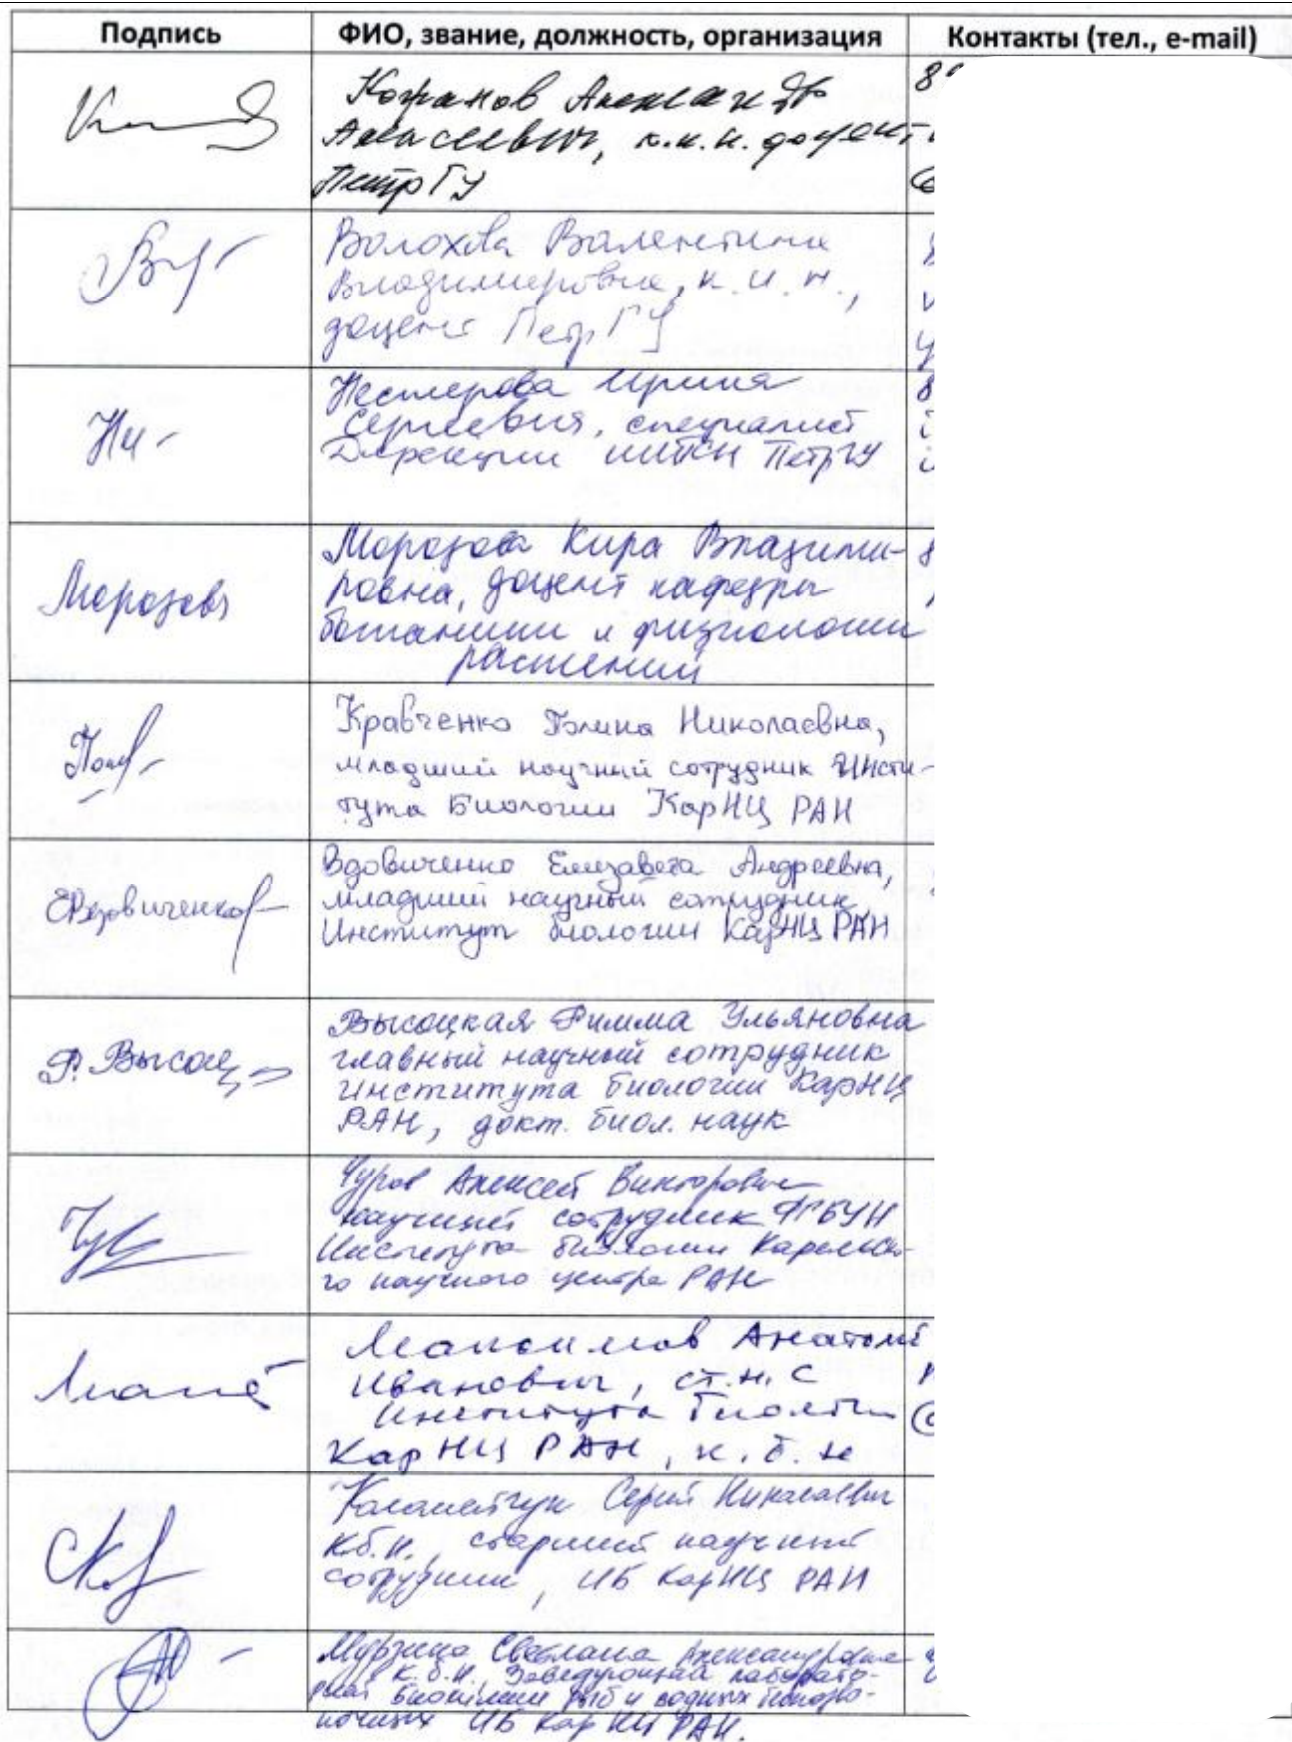 Подпись ФИО, звание, должность, организация Контакты (тел., e-mail)
Кожанов Александр
Алексеевич, к.и.н. доцент
ПетрГУ
Волохова Валентина
Владимировна, к.и.н.,
доцент ПетрГУ
Нестерова Ирина
Сергеевна, специалист
Дирекции ПетрГУ
Морозова
Морозова Кира Владими-
ровна, доцент кафедры
ботаники и физиологии
растений
Кравченко Галина Николаевна,
младший научный сотрудник Инсти-
тута Биологии КарНЦ РАН
ЕВдовиченко
Вдовиченко Елизавета Андреевна,
младший научный сотрудник,
Институт биологии КарНЦ РАН
Р. Высоц
Высоцкая Римма Ульяновна
главный научный сотрудник
института биологии КарНЦ
РАН, докт. биол. наук
Чуров Алексей Викторович
научный сотрудник ФГБУН
Института биологии Карельско-
го научного центра РАН
Максимов Анатолий
Иванович, ст.н.с
Института биологии
КарНЦ РАН, к.б.н
Коломейчук Сергей Николаевич
к.б.н., старший научный
сотрудник, ИБ КарНЦ РАН
Мурзина Светлана Александровна
к.б.н. Заведующая лаборато-
рией биохимии рыб и водных беспозво-
ночных ИБ КарНЦ РАН.